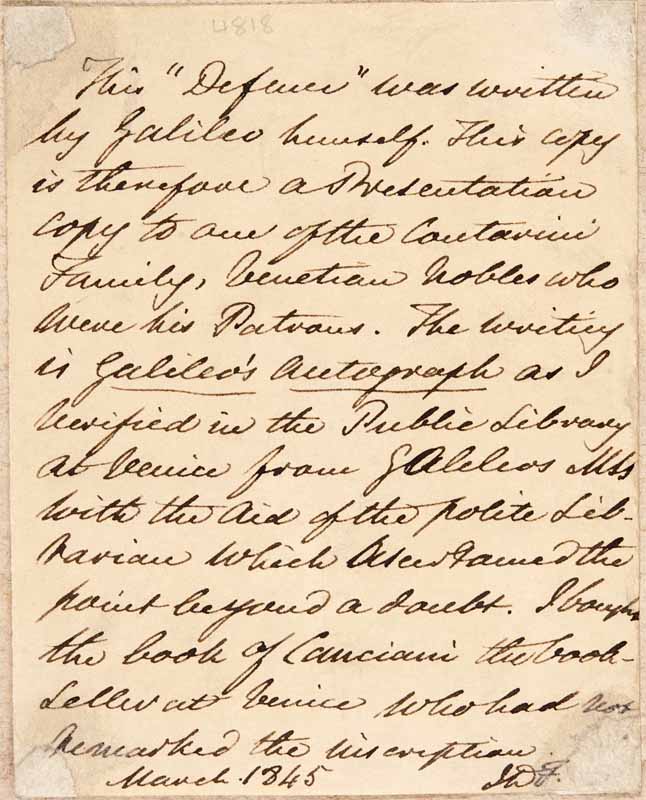 4818
This "Defence" was written
by Galileo himself. This copy
is therefore a Presentation
copy to one of the Contarini
Family, Venetian Nobles who
were his Patrons. The writing
is Galileo's Autograph as I
verified in the Public Library
at Venice from Galileos MSS
with the Aid of the polite Lib-
rarian which Ascertained the
point beyond a doubt. I bought
the book of Canciani the book-
seller at Venice who had not
remarked the inscription.
March. 1845 JDF.